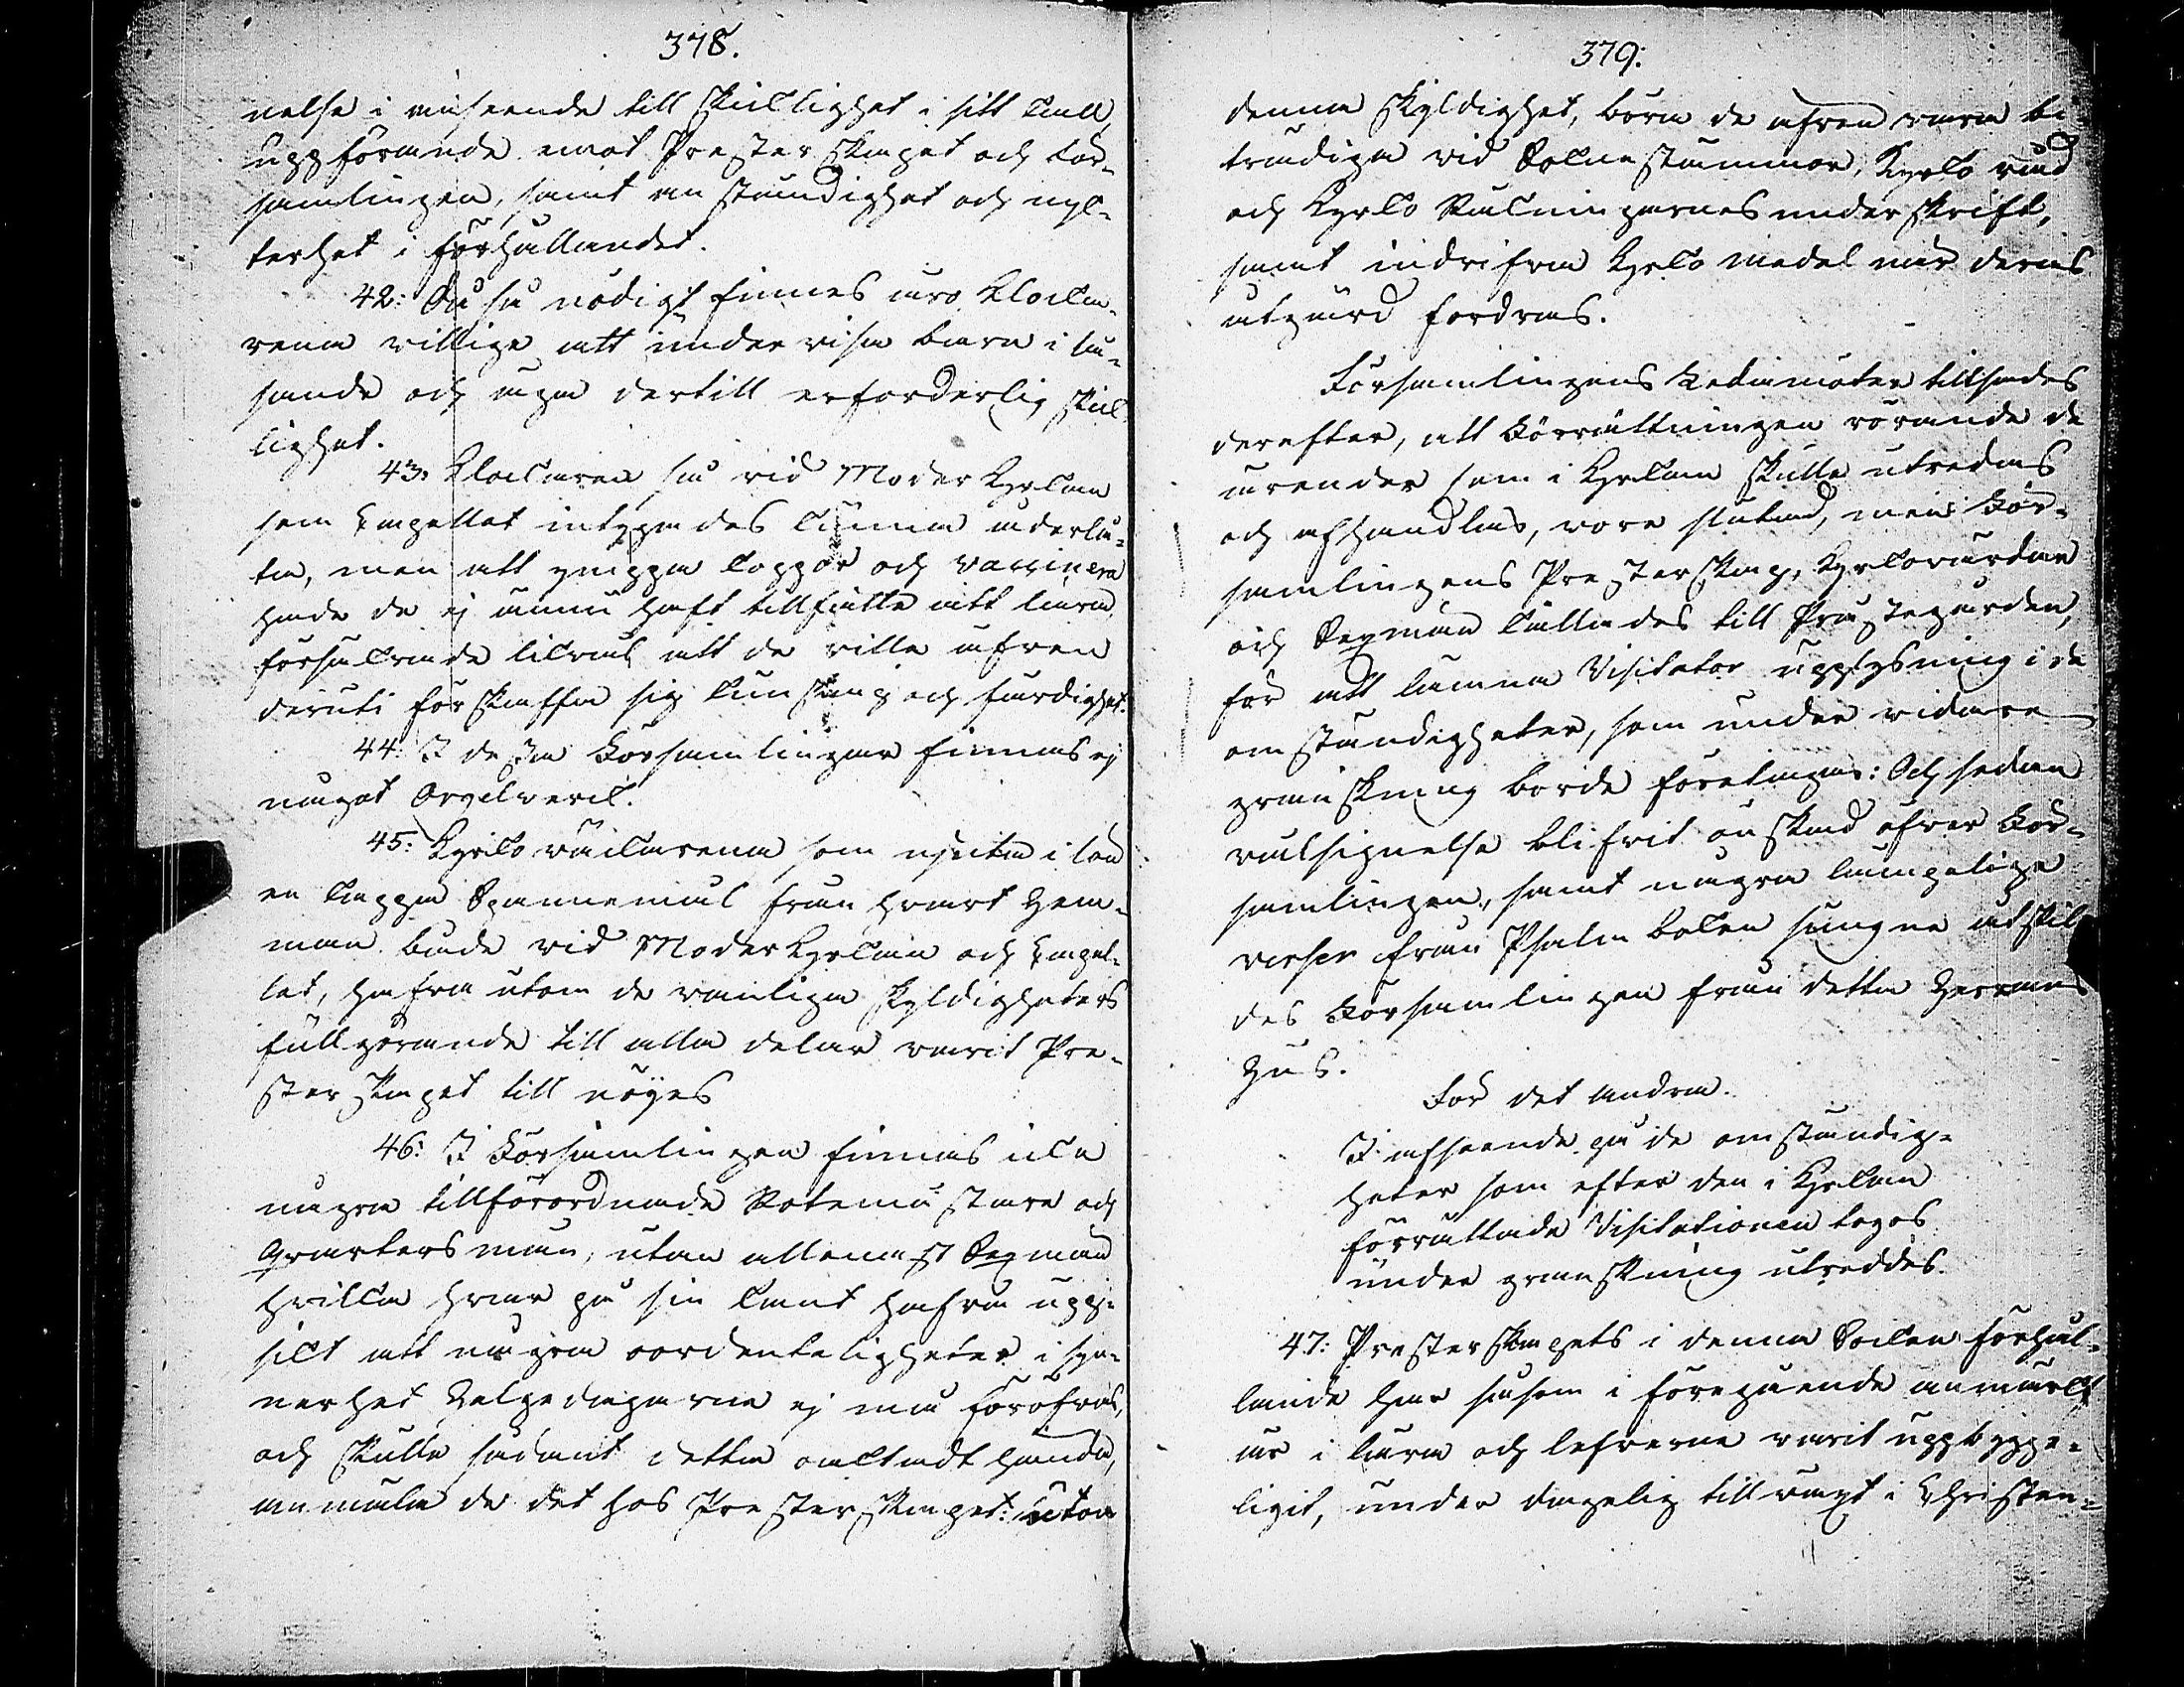 378.
nelse i anseende till skicklighet i sitt kall,
uppförande emot Presterskapet och För-
samlingen, samt anständighet och nyk-
terhet i förhållandet.
42: Då så nödigt finnes äro Klocka-
rena villige att undervisa barn i lä-
sande och äga dertill erforderlig skick-
lighet.
43: Klockaren så vid Moder Kyrkan
som Capellet intygades kunna åderlå-
ta, men att ympa koppor och vaccinera
hade de ej ännu haft tillfälle att lära,
försäkrade likväl att de ville äfven
deruti förskaffa sig kunskap och färdighet.
44: I dessa Församlingar finnes ej
något Orgelverck.
45: Kyrko väcktarena som njuta i lön
en kappa Spannemål från hvart Hem-
man både vid Moder Kyrkan och Capel-
let, hafva utom de vanliga skyldigheters
fullgörande till alla delar varit Pre-
sterskapet till nöjes
46: I Församlingen finnas icke
några tillförordnade Rotemästare och
Qvartersmän, utan allenast Sexmän
hvilka hvar på sin kant hafva upp-
sikt att några oordenteligheter i syn-
nerhet Helgedagarne ej må föröfvas,
och skulle sådant detta oaktadt hända,
anmäla de det hos Presterskapet: utom
379:
denna skyldighet, böra de äfven vara bi-
trädiga vid Sockne stämmor, Kyrko råd
och Kyrko Räkningarnes underskrift,
samt indrifva Kyrko medel när deras
utgärd fordras.
Församlingens Ledamöter tillsades
derefter, att Förrättningen rörande de
ärender som i Kyrkan skulle utredas
och afhandlas, vore slutad, men För-
samlingens Presterskap, Kyrkovärdar
och Sexmän kallades till Prästegården,
för att lämna Visitator upplysning i de
omständigheter, som under vidare
granskning borde företagas: Och sedan
välsignelse blifvit önskad öfver För-
samlingen, samt några lämpelige
verser från Psalm boken sungne åtskil-
des Församlingen från detta Herrans
Hus.
För det andra.
I afseende på de omständig-
heter som efter den i Kyrkan
förrättade Visitationen togos
under granskning utreddes.
47: Presterskapets i denna Socken förhål-
lande har såsom i föregående anmärkt
är i lära och lefverne varit uppbygge-
ligit, under dagelig tillväxt i Christen-